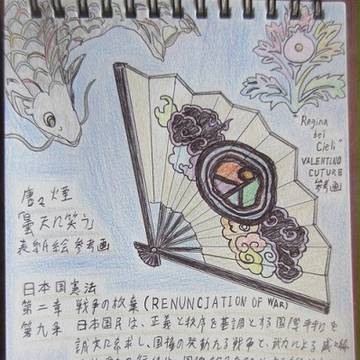 "Regina
dei
Cieli"
VALENTINO
CUTURE
参考画
唐々煙
「曇天に笑う」
表紙絵参考画
日本国憲法
第二章 戦争の放棄(RENUNCIATION OF WAR)
第九条 日本国民は、正義と秩序を基調とする国際平和を
誠実に希求し、国権の発動たる戦争と、武力による威嚇